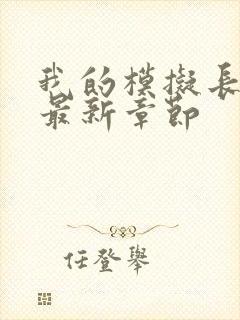 我的模擬長
最新章節
任登舉